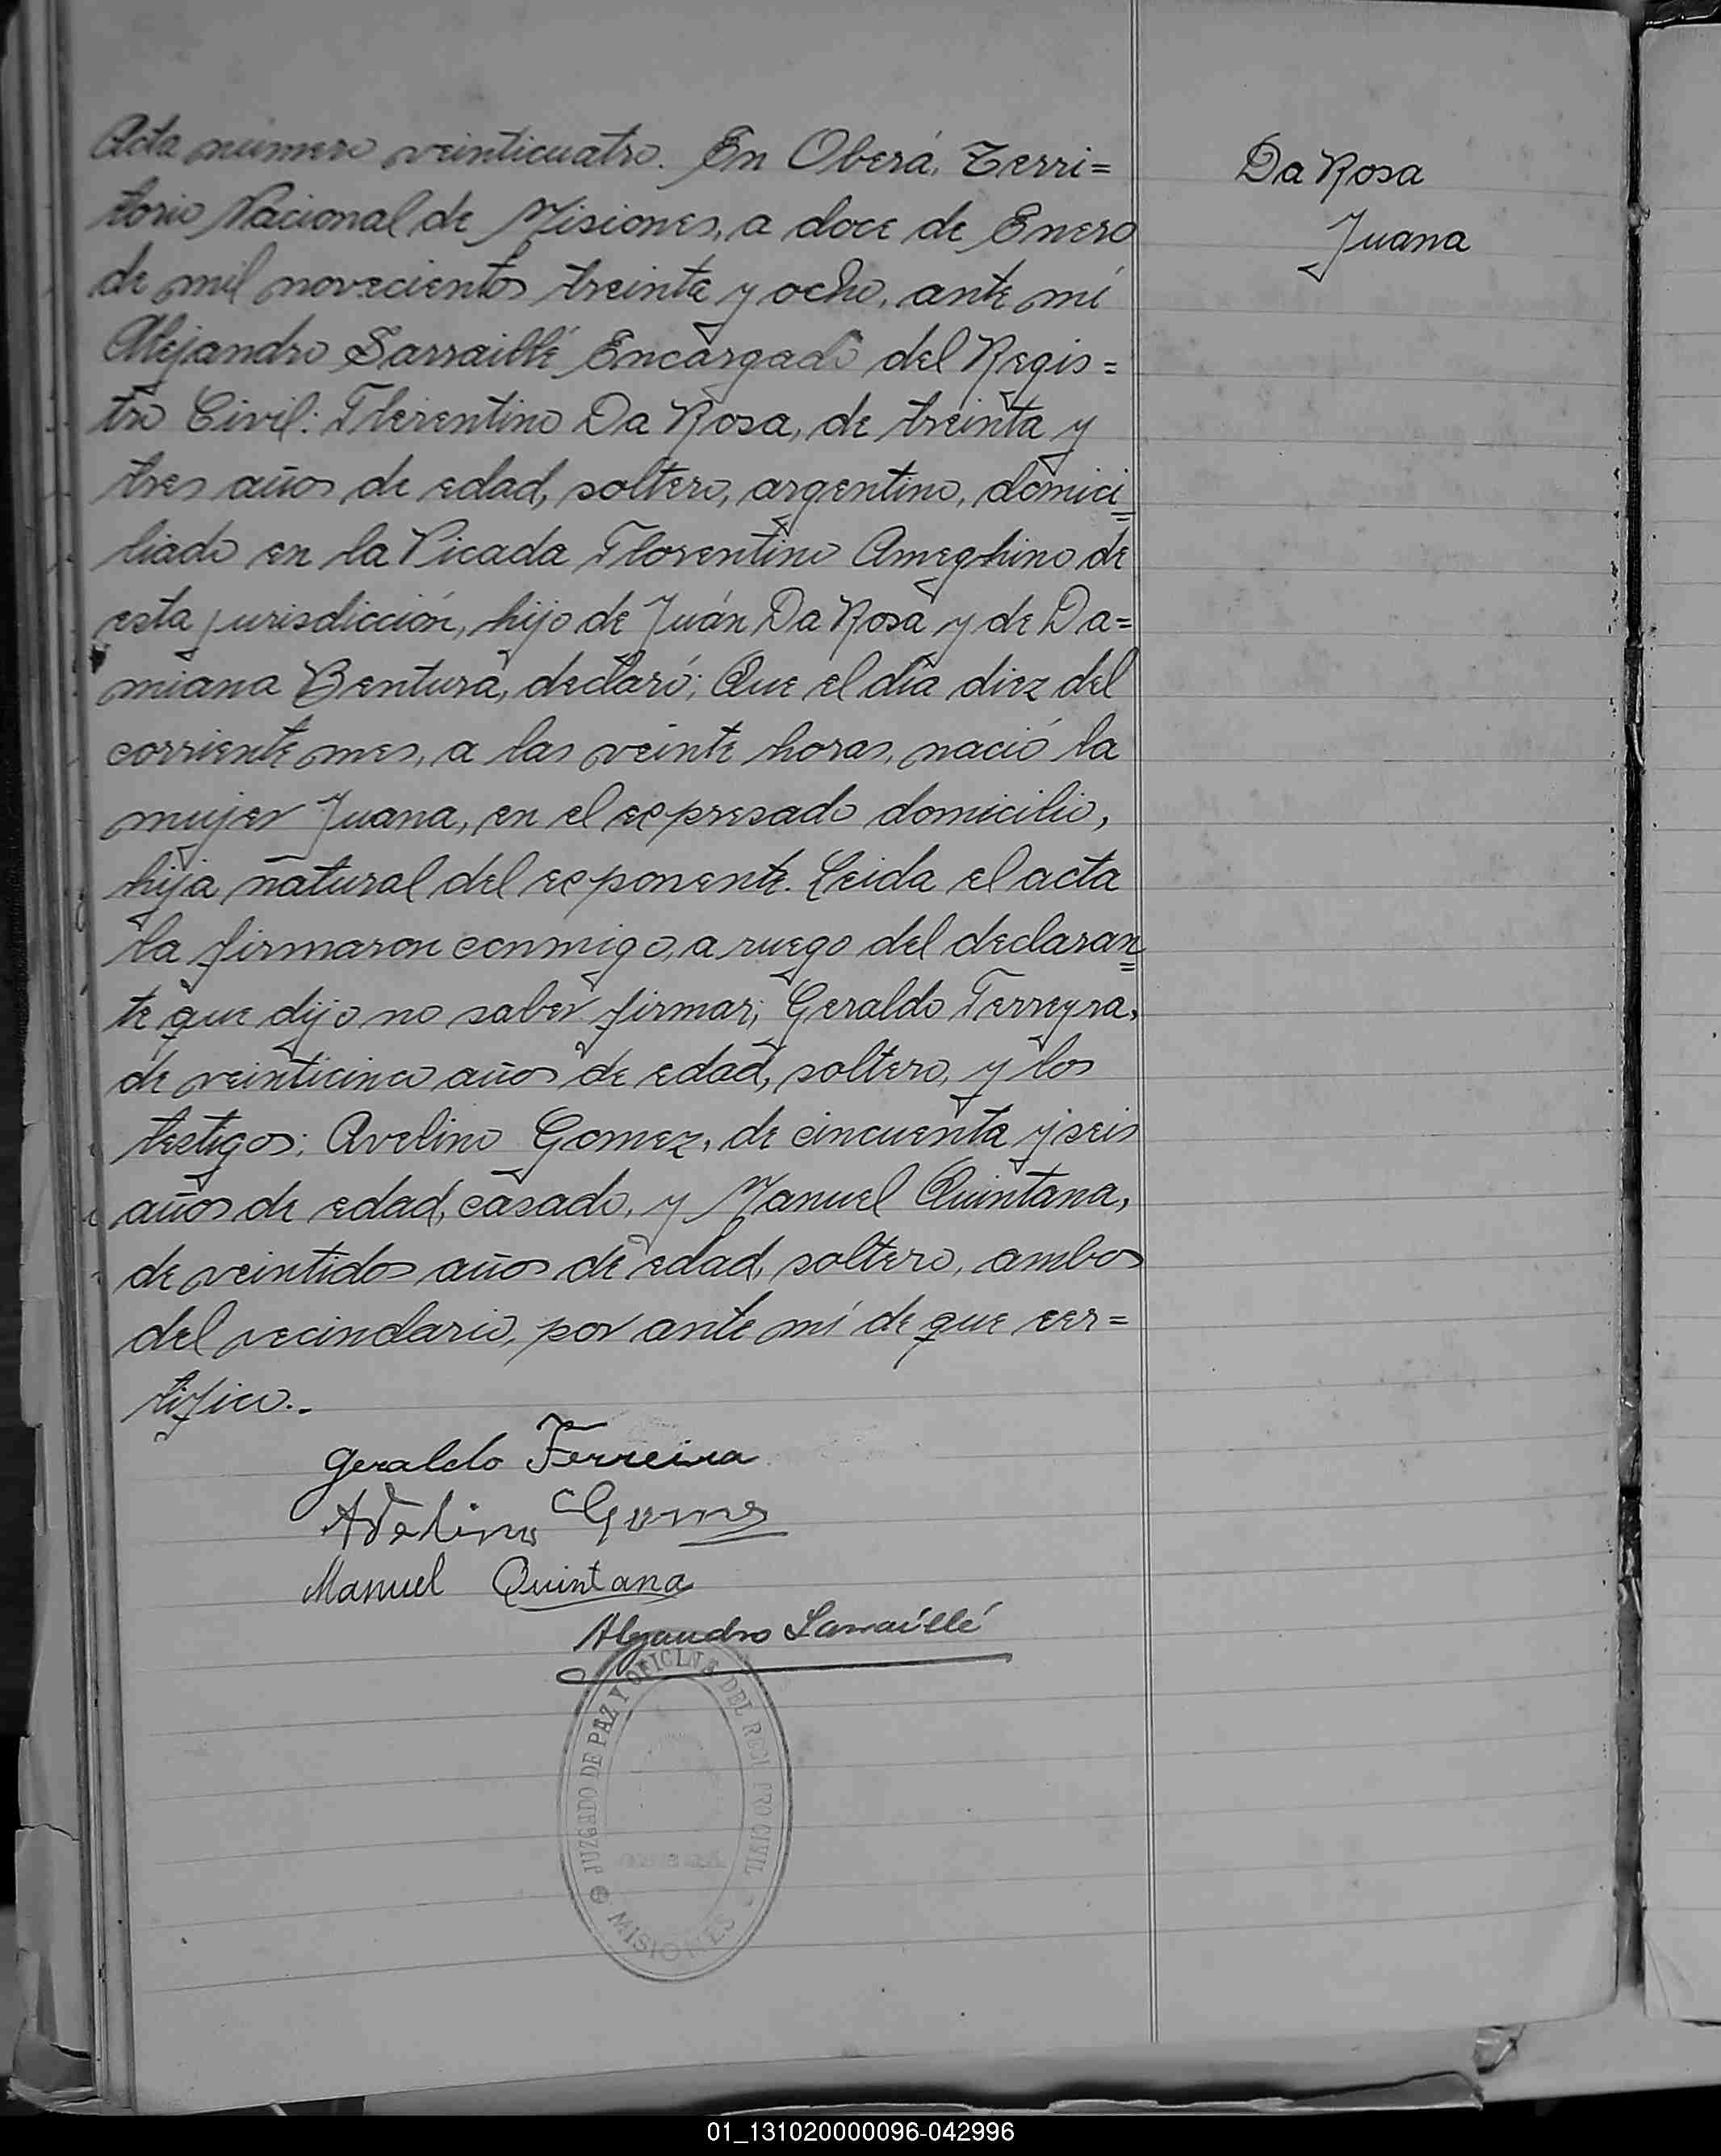 Acta número veinticuatro. En Oberá, Terri=
torio Nacional de Misiones, a doce de Enero
de mil novecientos treinta y ocho, ante mí
Alejandro Sarraillé Encargado del Regis=
tro Civil: Florentino Da Rosa, de treinta y
tres años de edad, soltero, argentino, domici=
liado en la Picada Florentino Ameghino de
esta jurisdicción, hijo de Juán Da Rosa y de Da=
miana Bentura, declaró; Que el día diez del
corriente mes, a las veinte horas, nació la
mujer Juana, en el expresado domicilio,
hija natural del exponente. Leida el acta
la firmaron conmigo, a ruego del declaran=
te que dijo no saber firmar; Geraldo Ferreyra,
de veinticinco años de edad, soltero, y los
testigos: Avelino Gomez, de cincuenta y seis
años de edad, casado, y Manuel Quintana,
de veintidos años de edad, soltero, ambos
del vecindario, por ante mí de que cer=
tifico..
Geraldo Ferreira
Avelino Gomes
Manuel Quintana
Alejandro Sarraillé
JUZGADO DE PAZ Y OFICINA DEL REGISTRO CIVIL
MISIONES
Da Rosa
Juana
01_131020000096-042996